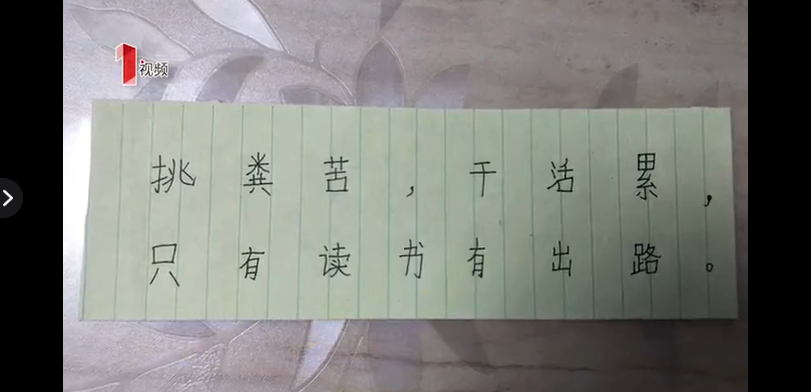 1视频
挑粪苦，干活累，
只有读书有出路。